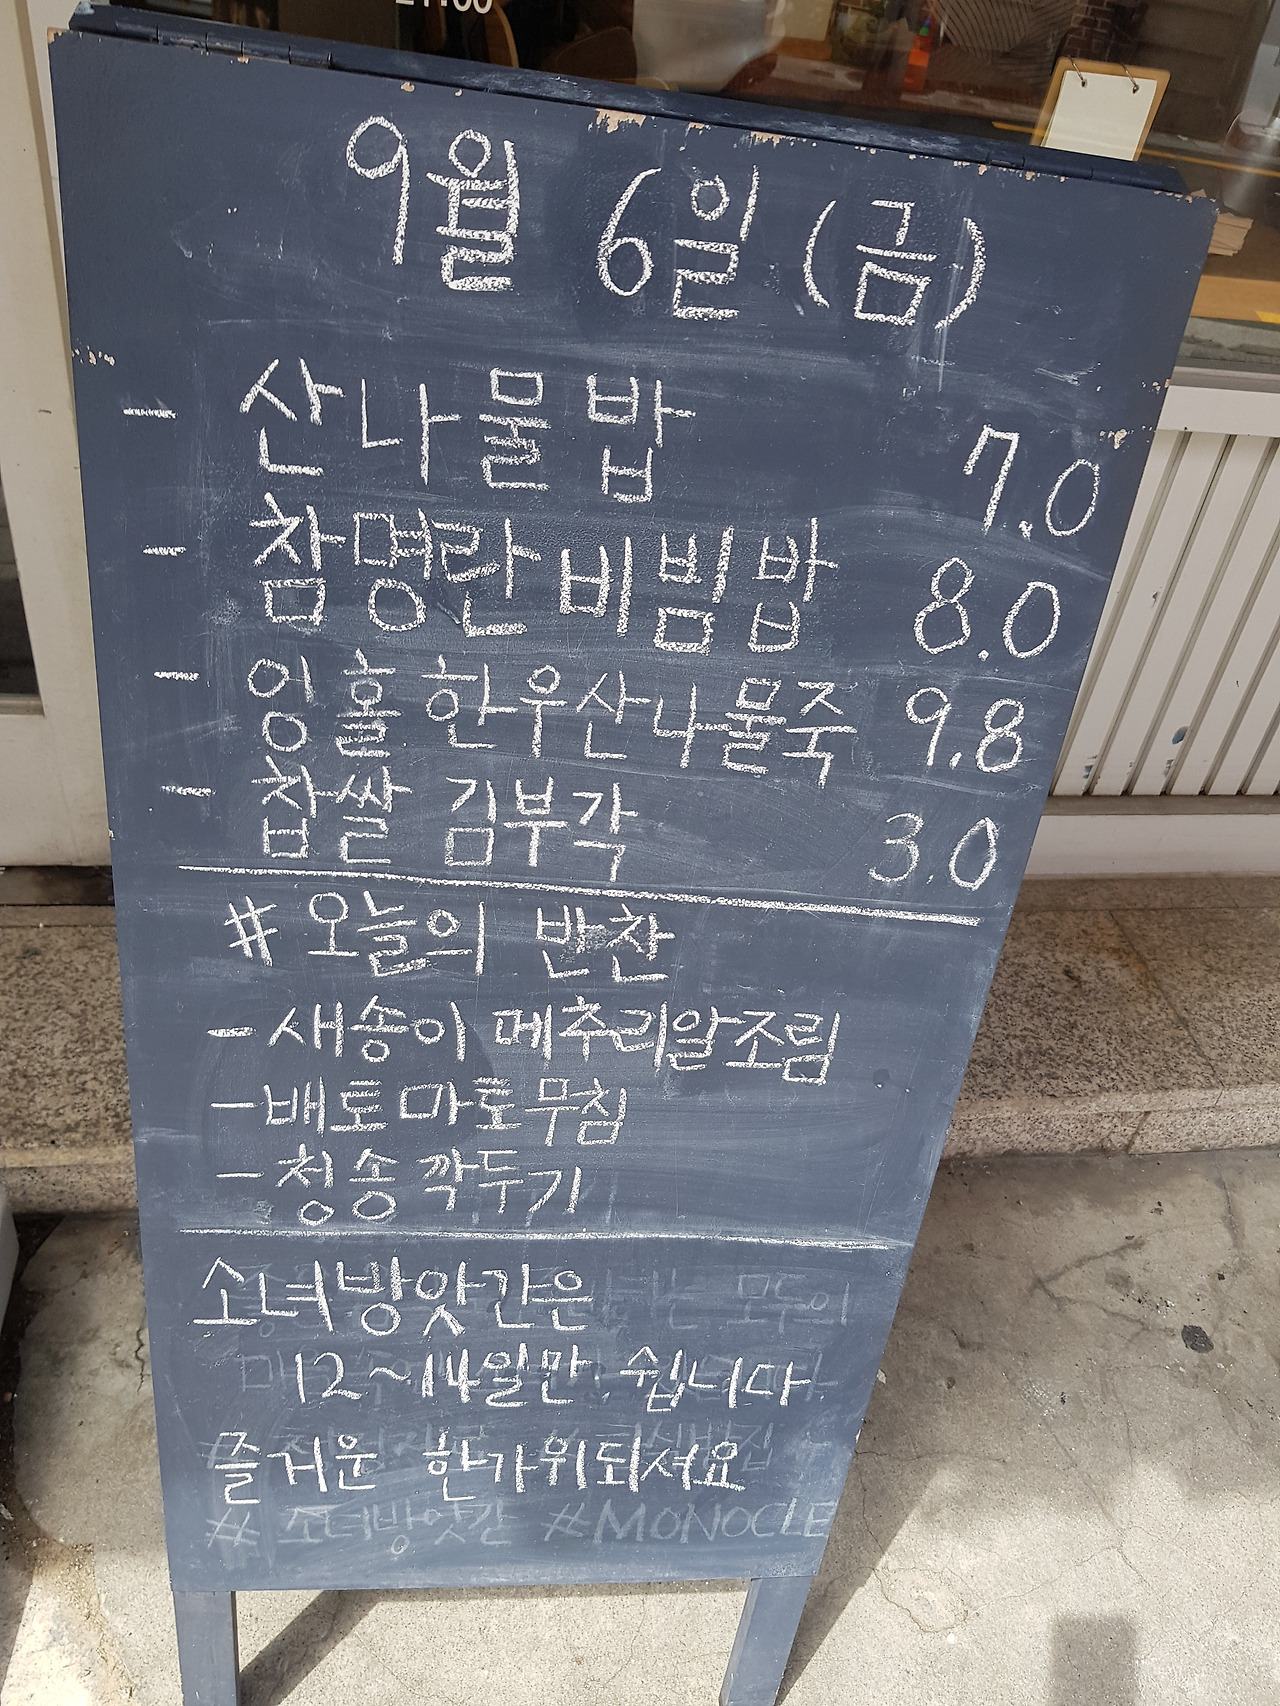 21:00
9월 6일 (금)
- 산나물밥 7.0
- 참명란 비빔밥 8.0
- 잉홀 한우산나물죽 9.8
- 찹쌀 김부각 3.0
# 오늘의 반찬
- 새송이 메추리알조림
- 배토마토무침
- 청송 깍두기
소녀방앗간은
12~14일만 쉽니다
즐거운 한가위되셔요
# 소녀방앗간 #MONOCLE